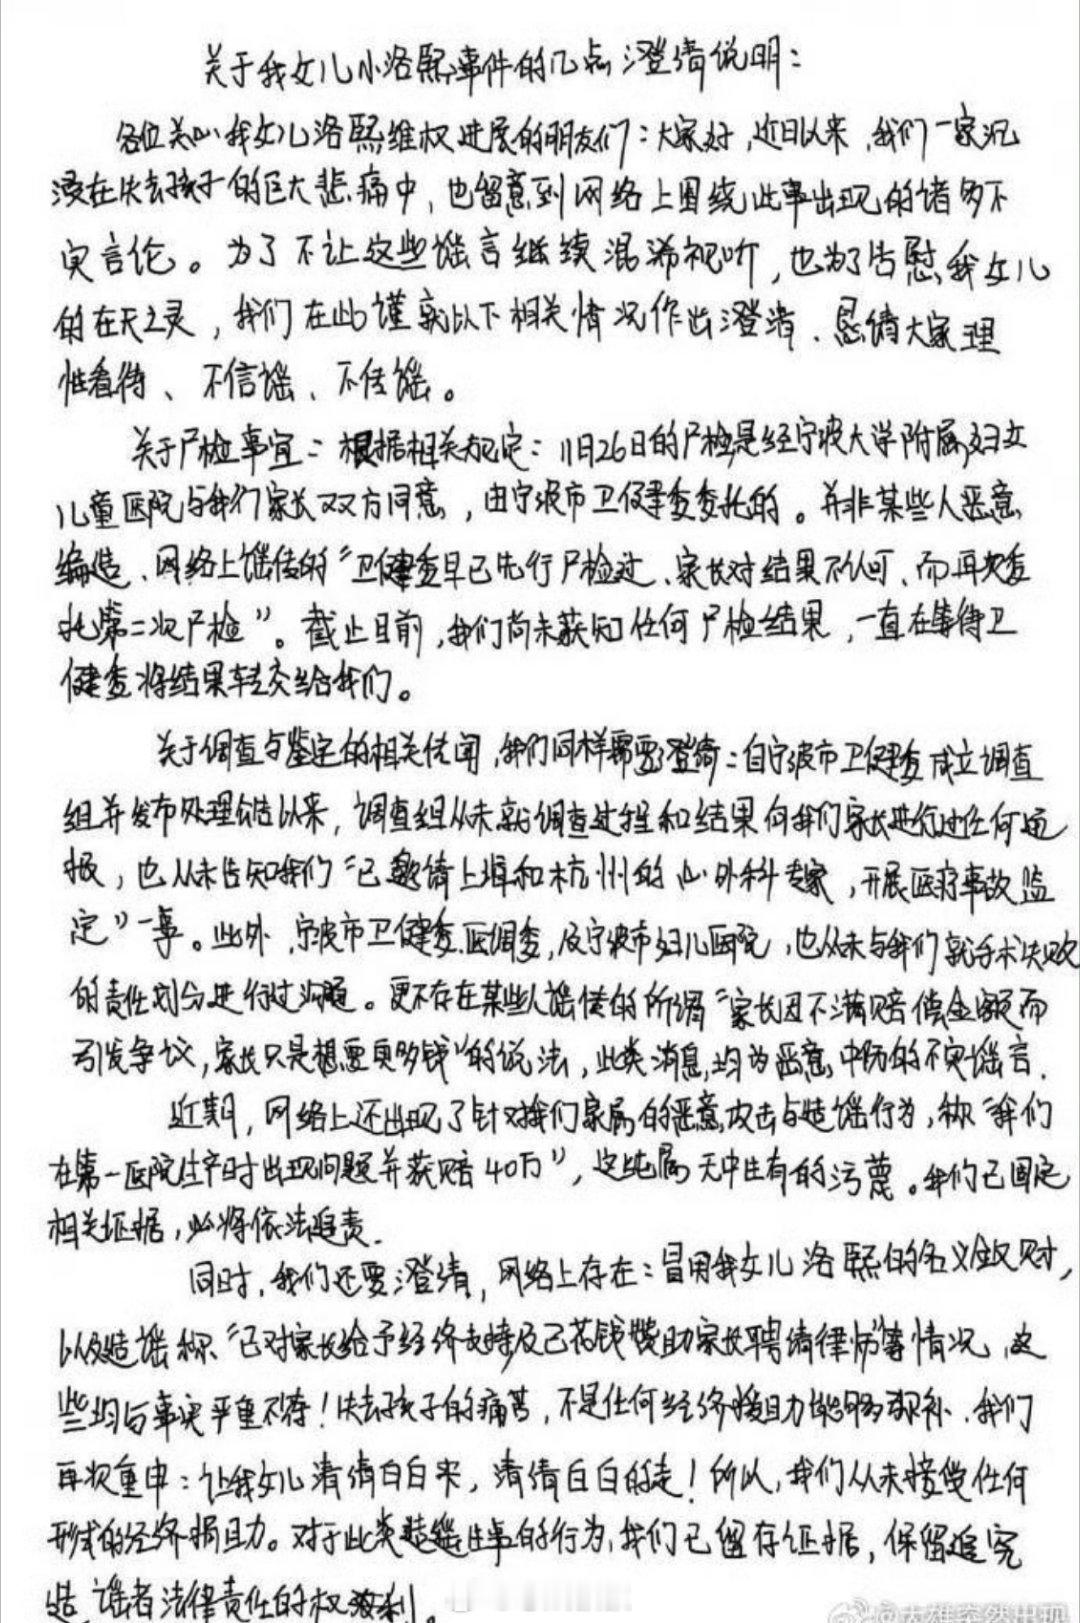 关于我女儿小洛熙事件的几点澄清说明：
各位关心我女儿洛熙维权进展的朋友们：大家好，近日以来，我们一家沉
浸在失去孩子的巨大悲痛中，也留意到网络上围绕此事出现的诸多不
实言论。为了不让这些谣言继续混淆视听，也为了告慰我女儿
的在天之灵，我们在此谨就以下相关情况作出澄清、恳请大家理
性看待、不信谣、不传谣。
关于尸检事宜：根据相关规定：11月26日的尸检是经宁波大学附属妇女
儿童医院与我们家长双方同意，由宁波市卫健委委托的。并非某些人恶意
编造、网络上谣传的“卫健委早已先行尸检过、家长对结果不认可、而再次委
托第二次尸检”。截止目前，我们尚未获知任何尸检结果，一直在等待卫
健委将结果转交给我们。
关于调查与鉴定的相关传闻，我们同样需要澄清：自宁波市卫健委成立调查
组并发布处理公告以来，调查组从未就调查过程和结果向我们家长进行过任何通
报，也从未告知我们“已邀请上海和杭州的心外科专家，开展医疗事故监
定”一事。此外，宁波市卫健委、医调委，及宁波市妇儿医院，也从未与我们就手术失败
的责任划分进行过沟通。更不存在某些人谣传的所谓“家长因不满赔偿金额而
引发争议，家长只是想要更多钱”的说法，此类消息，均为恶意中伤的不实谣言.
近期，网络上还出现了针对我们家属的恶意攻击与造谣行为，称“我们
在第一医院生产时出现问题并获赔40万”，这纯属无中生有的污蔑。我们已固定
相关证据，必将依法追责.
同时，我们还要澄清，网络上存在：冒用我女儿洛熙的名义敛财，
以及造谣称“已对家长给予经济支持及已花钱赞助家长聘请律师”等情况，这
些均与事实严重不符！失去孩子的痛苦，不是任何经济援助能够弥补、我们
再次重申：让我女儿清清白白来，清清白白的走！所以，我们从未接受任何
形式的经济捐助。对于此类造谣生事的行为，我们已留存证据，保留追究
造谣者法律责任的权利。
@大雄突然出现